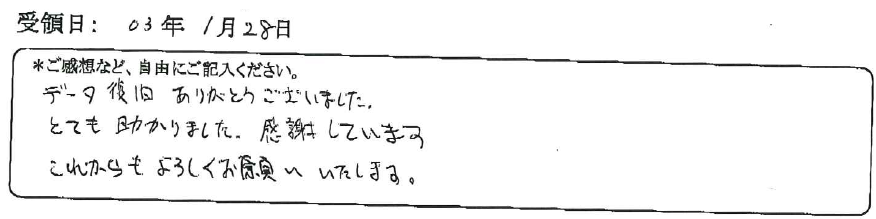 受領日： 03年 1月28日
＊ご感想など、自由にご記入ください。
データ復旧 ありがとうございました。
とても 助かりました。感謝しています
これからも よろしくお願い いたします。